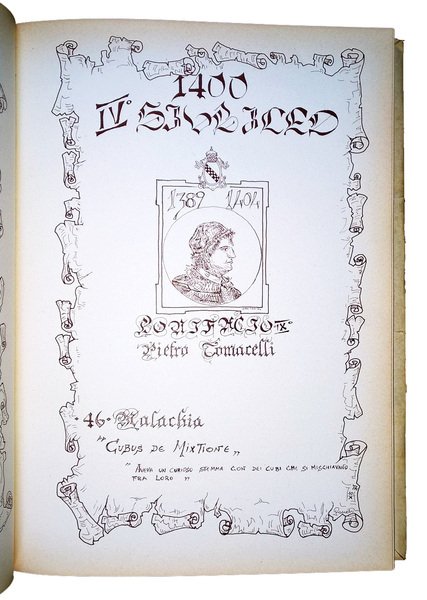 1400
IV° GIUBILEO
1389 1404
BONIFACIO IX°
Pietro Tomacelli
·46· Malachia
"CUBUS DE MIXTIONE"
"AVEVA UN CURIOSO STEMMA CON DEI CUBI CHE SI MISCHIAVANO
FRA LORO"